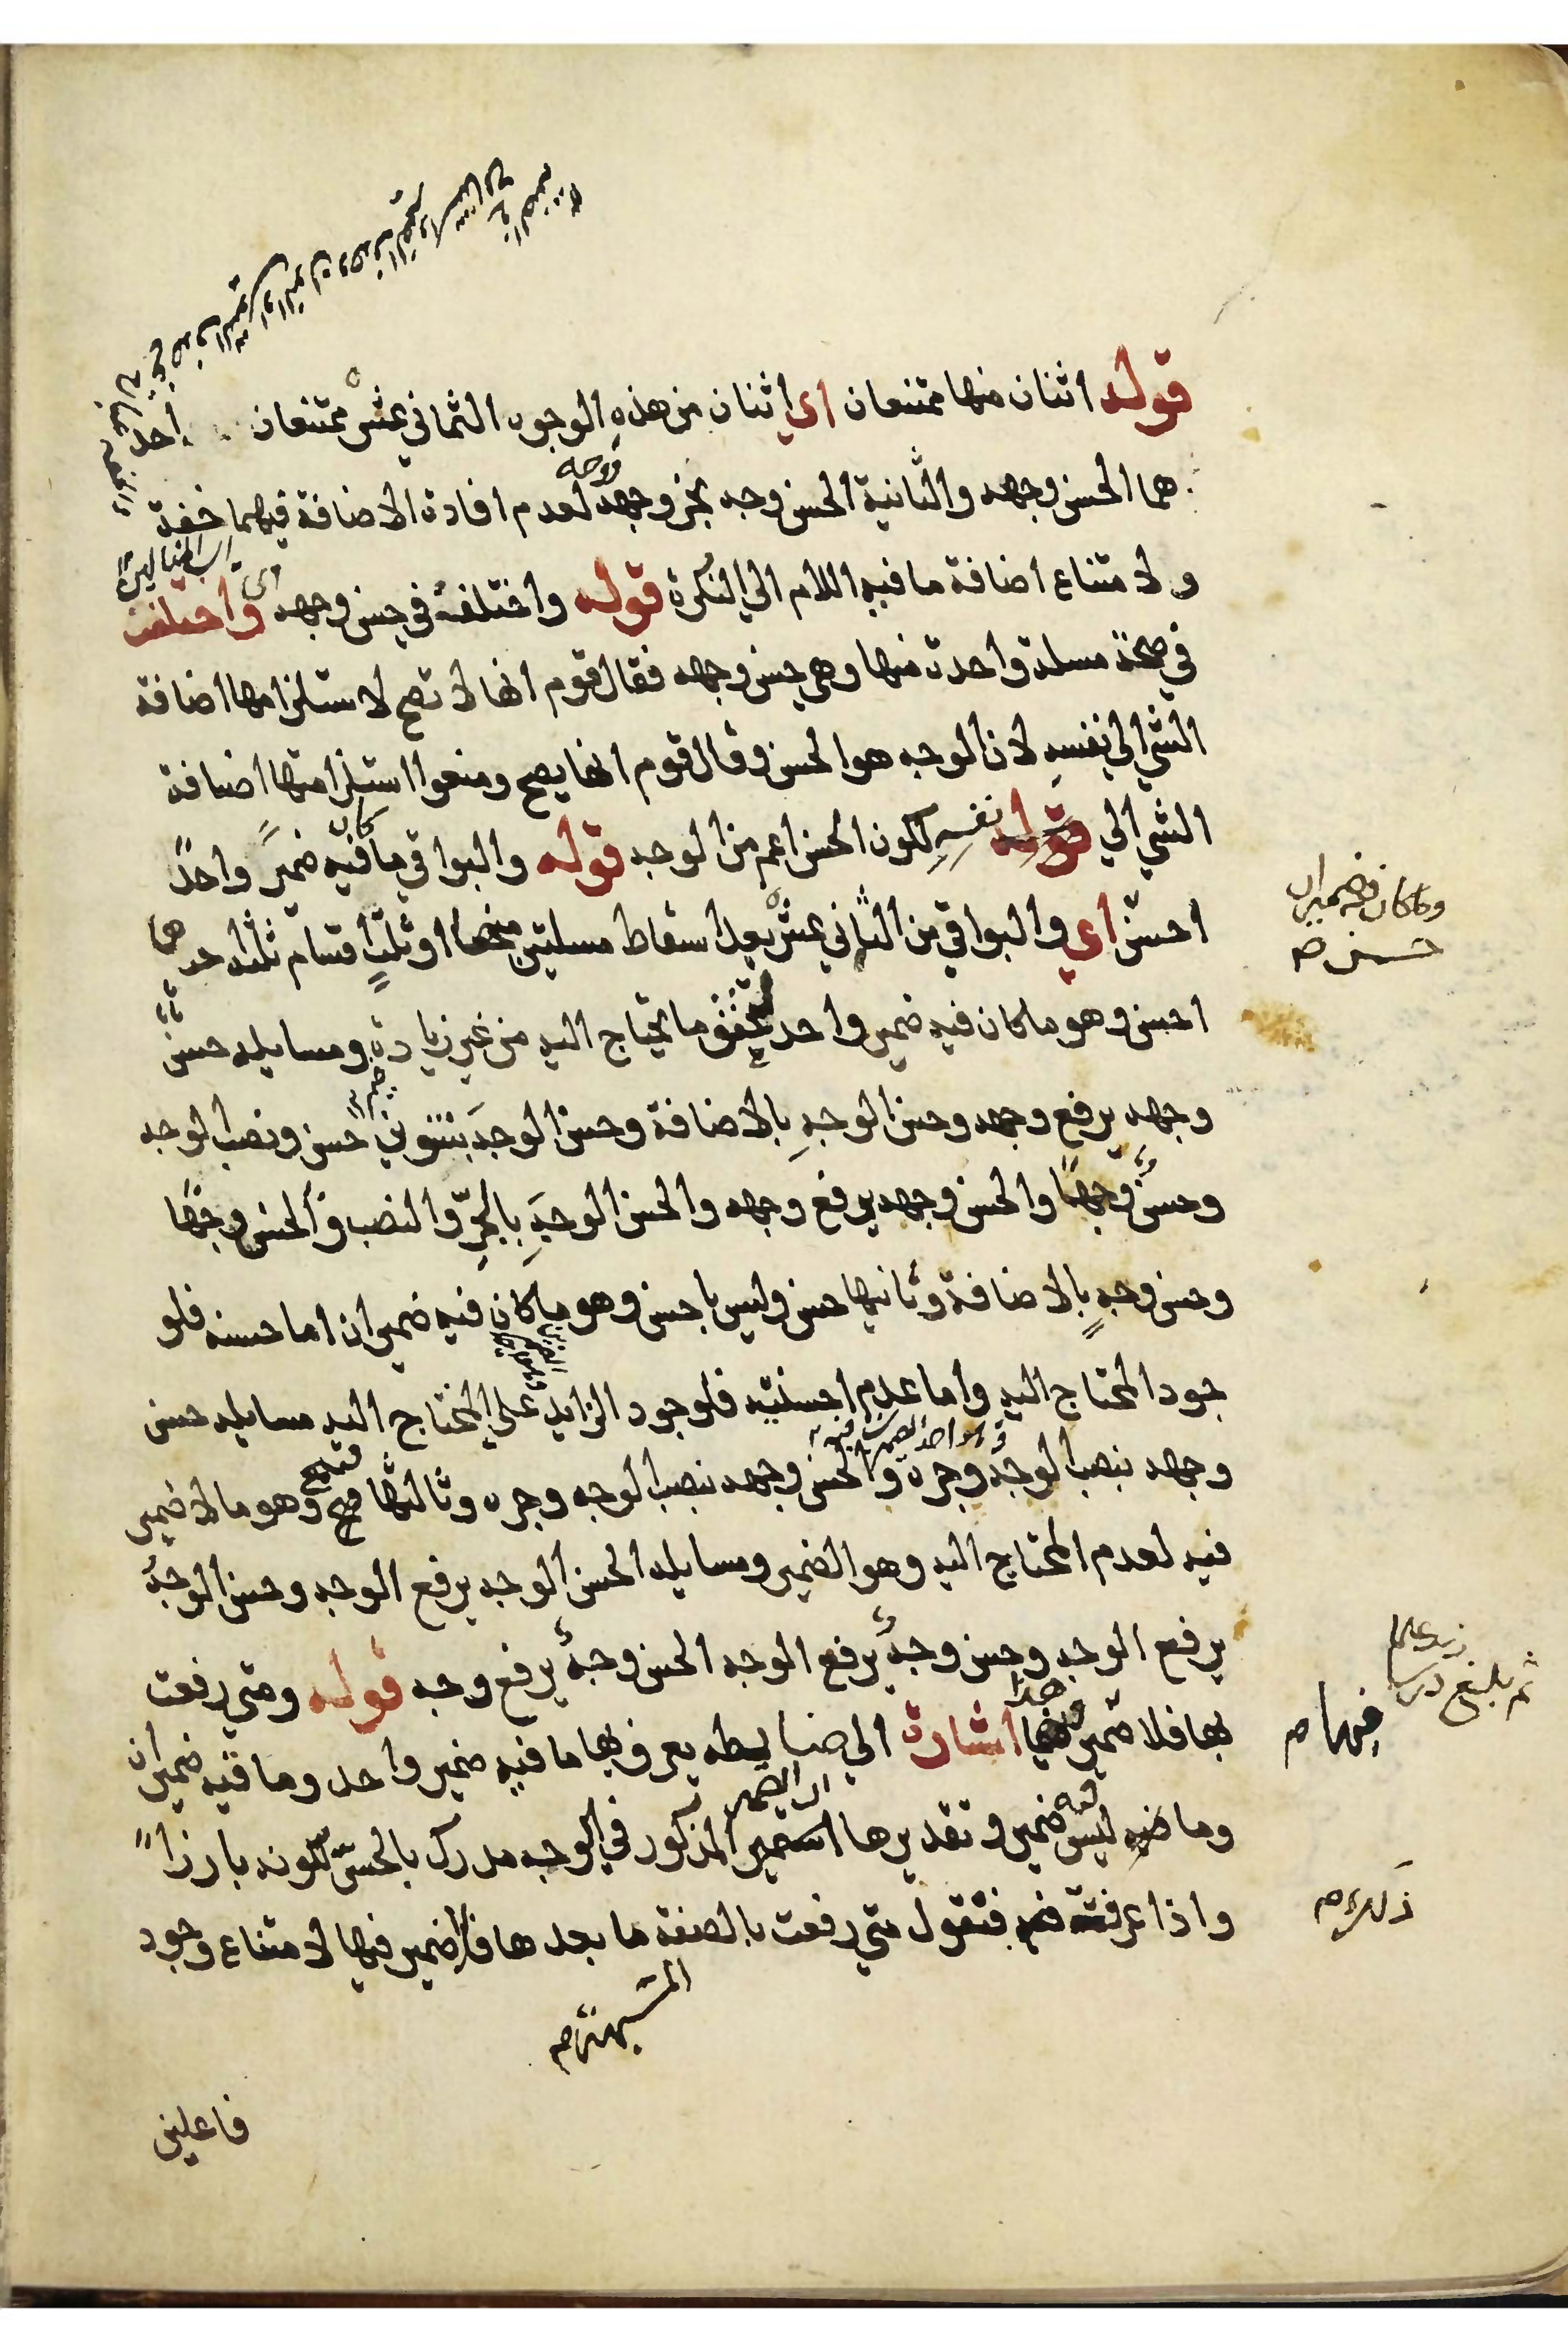 قوله اثنان منها ممتنعان اي اثنان من هذه الوجوه الثماني عشر ممتنعان احد
هما الحسن وجهه والثانية الحسن وجه بجر وجهه لعدم افادة الاضافة فيهما خفة
ولامتناع اضافة ما فيه اللام الي النكرة قوله واختلف في حسن وجهه اي واختلفت
في صحة مسلة واحدة منها وهي حسن وجهه فقال قوم انها لا تصح لاستلزامها اضافة
الشي الي نفسه لان الوجه هو الحسن وقال قوم انها يصح ومنعوا استلزامتها اضافة
الشي الي نفسه لكون الحسن اعم من الوجه قوله والبواقي ما كان فيه ضمير واحد
احسن اي والبواقي من الثماني عشر بعد اسقاط مسلتين منها او ثلث اقسام ثلثة احدها
احسن وهو ما كان فيه ضمير واحد لتحقق ما يحتاج اليه من غير زيادة ومسايله حسن
وجهه برفع وجهه وحسن الوجهِ بالاضافة وحسن الوجهَ بتنوين حسن ونصب الوجه
وحسنٌ وجهًا والحسن وجهه برفع وجهه والحسن الوجه بالجر والنصب والحسن وجهًا
وحسن وجهٍ بالاضافة وثانيها حسن وليس باحسن وهو ما كان فيه ضميران اما حسنه فلو
جود المحتاج اليه واما عدم احسنيته فلوجود الزايد علي المحتاج اليه مسايله حسن
وجهه بنصب الوجه وجره والحسن وجهه بنصب الوجه وجره وثالثها قبيح وهو ما لا ضمير
فيه لعدم المحتاج اليه وهو الضمير ومسايله الحسن الوجه برفع الوجه وحسن الوجهُ
برفع الوجه وحسن وجهٌ برفع الوجه الحسن وجهٌ برفع وجه قوله ومتي رفعت
بها فلا ضمير فيها اشارة الي ضابطه يعرف بها ما فيه ضمير واحد وما فيه ضميران
وما ليس فيه ضمير وتقديرها ان الضمير المذكور في الوجه مدرك بالحس لكونه بارزاً
واذا عرفت فنقول متي رفعت بالصفة ما بعدها فلا ضمير فيها لامتناع وجود
المشبهة صح
فاعلين
وما كان فيه ضميران
حسن صح
فيها صح
ذلك صح